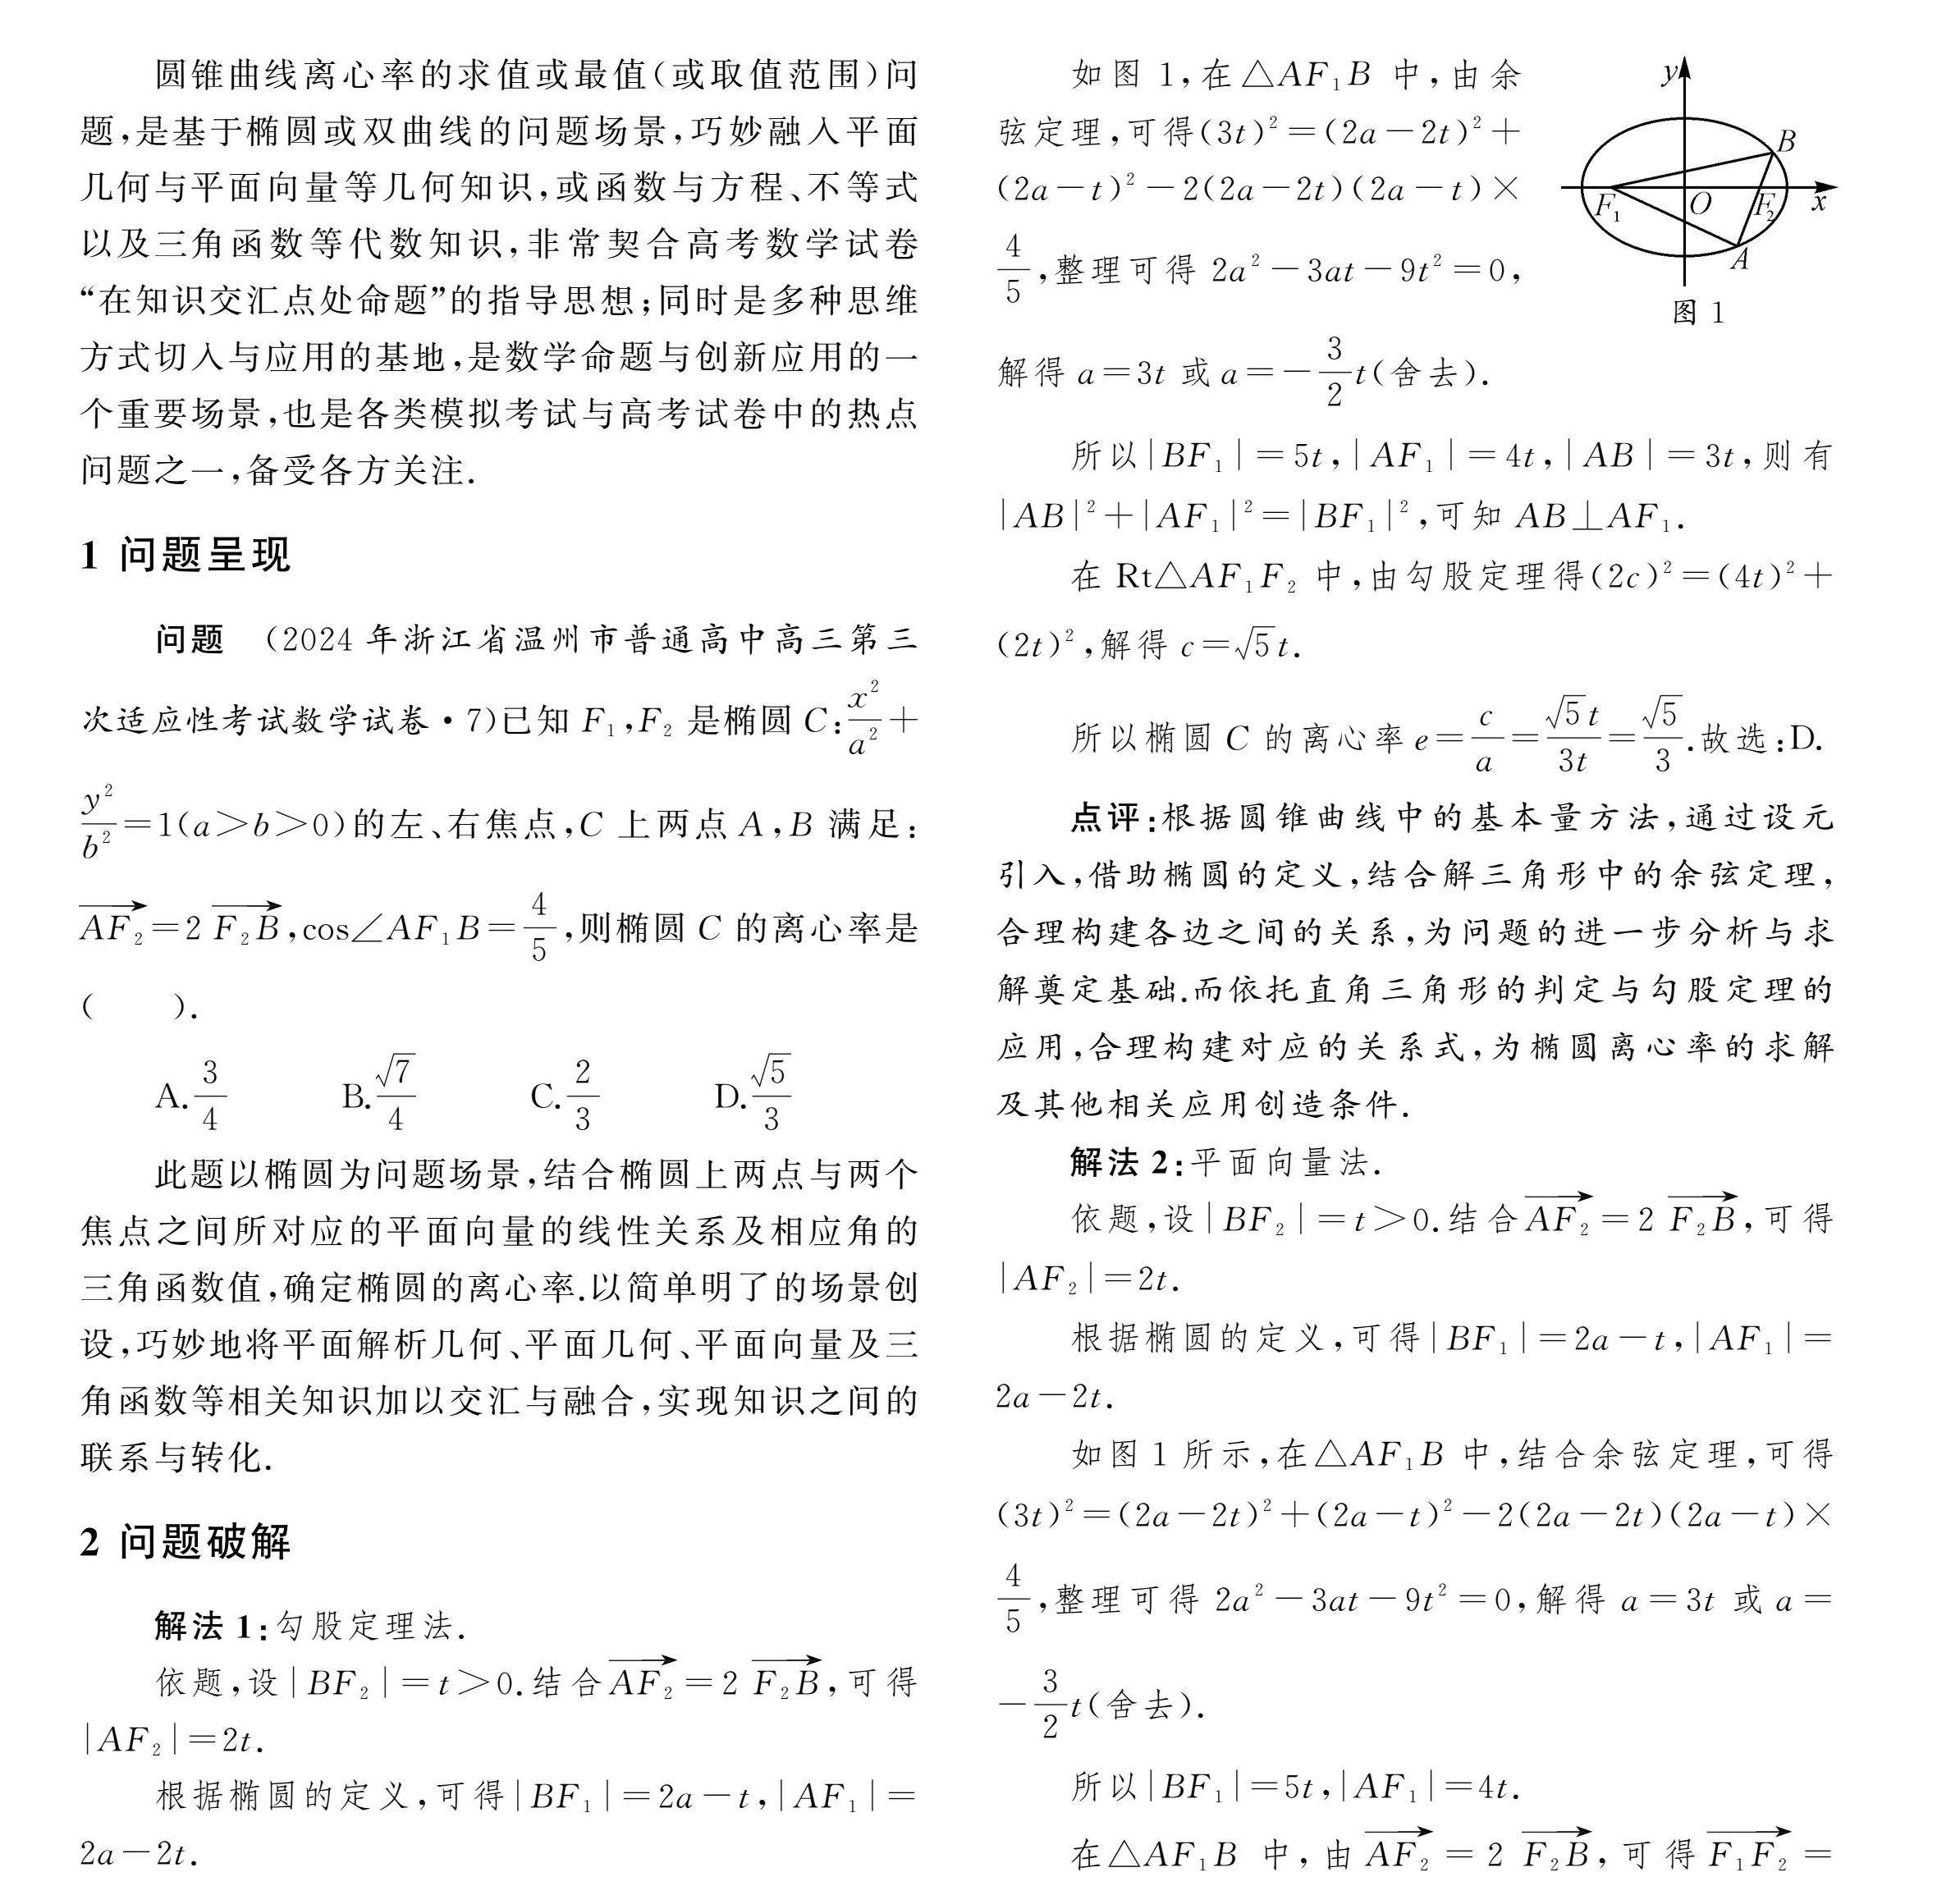 圆锥曲线离心率的求值或最值(或取值范围)问
题,是基于椭圆或双曲线的问题场景,巧妙融入平面
几何与平面向量等几何知识,或函数与方程、不等式
以及三角函数等代数知识,非常契合高考数学试卷
“在知识交汇点处命题”的指导思想;同时是多种思维
方式切入与应用的基地,是数学命题与创新应用的一
个重要场景,也是各类模拟考试与高考试卷中的热点
问题之一,备受各方关注.
1 问题呈现
问题 (2024年浙江省温州市普通高中高三第三
次适应性考试数学试卷·7)已知 F₁,F₂ 是椭圆 C:x²/a²+
y²/b²=1(a>b>0)的左、右焦点,C 上两点 A,B 满足:
\overrightarrow{AF₂}=2\overrightarrow{F₂B},cos∠AF₁B=4/5,则椭圆 C 的离心率是
( ).
A.3/4 B.√7/4 C.2/3 D.√5/3
此题以椭圆为问题场景,结合椭圆上两点与两个
焦点之间所对应的平面向量的线性关系及相应角的
三角函数值,确定椭圆的离心率.以简单明了的场景创
设,巧妙地将平面解析几何、平面几何、平面向量及三
角函数等相关知识加以交汇与融合,实现知识之间的
联系与转化.
2 问题破解
解法 1:勾股定理法.
依题,设|BF₂|=t>0.结合\overrightarrow{AF₂}=2\overrightarrow{F₂B},可得
|AF₂|=2t.
根据椭圆的定义,可得|BF₁|=2a-t,|AF₁|=
2a-2t.
如图 1,在△AF₁B 中,由余
弦定理,可得(3t)²=(2a-2t)²+
(2a-t)²-2(2a-2t)(2a-t)×
4/5,整理可得 2a²-3at-9t²=0,
解得 a=3t 或 a=-3/2t(舍去).
y
B
F₁ O F₂ x
A
图 1
所以|BF₁|=5t,|AF₁|=4t,|AB|=3t,则有
|AB|²+|AF₁|²=|BF₁|²,可知 AB⊥AF₁.
在 Rt△AF₁F₂ 中,由勾股定理得(2c)²=(4t)²+
(2t)²,解得 c=√5t.
所以椭圆 C 的离心率 e=c/a=√5t/3t=√5/3.故选:D.
点评:根据圆锥曲线中的基本量方法,通过设元
引入,借助椭圆的定义,结合解三角形中的余弦定理,
合理构建各边之间的关系,为问题的进一步分析与求
解奠定基础.而依托直角三角形的判定与勾股定理的
应用,合理构建对应的关系式,为椭圆离心率的求解
及其他相关应用创造条件.
解法 2:平面向量法.
依题,设|BF₂|=t>0.结合\overrightarrow{AF₂}=2\overrightarrow{F₂B},可得
|AF₂|=2t.
根据椭圆的定义,可得|BF₁|=2a-t,|AF₁|=
2a-2t.
如图 1 所示,在△AF₁B 中,结合余弦定理,可得
(3t)²=(2a-2t)²+(2a-t)²-2(2a-2t)(2a-t)×
4/5,整理可得 2a²-3at-9t²=0,解得 a=3t 或 a=
-3/2t(舍去).
所以|BF₁|=5t,|AF₁|=4t.
在△AF₁B 中,由\overrightarrow{AF₂}=2\overrightarrow{F₂B},可得\overrightarrow{F₁F₂}=